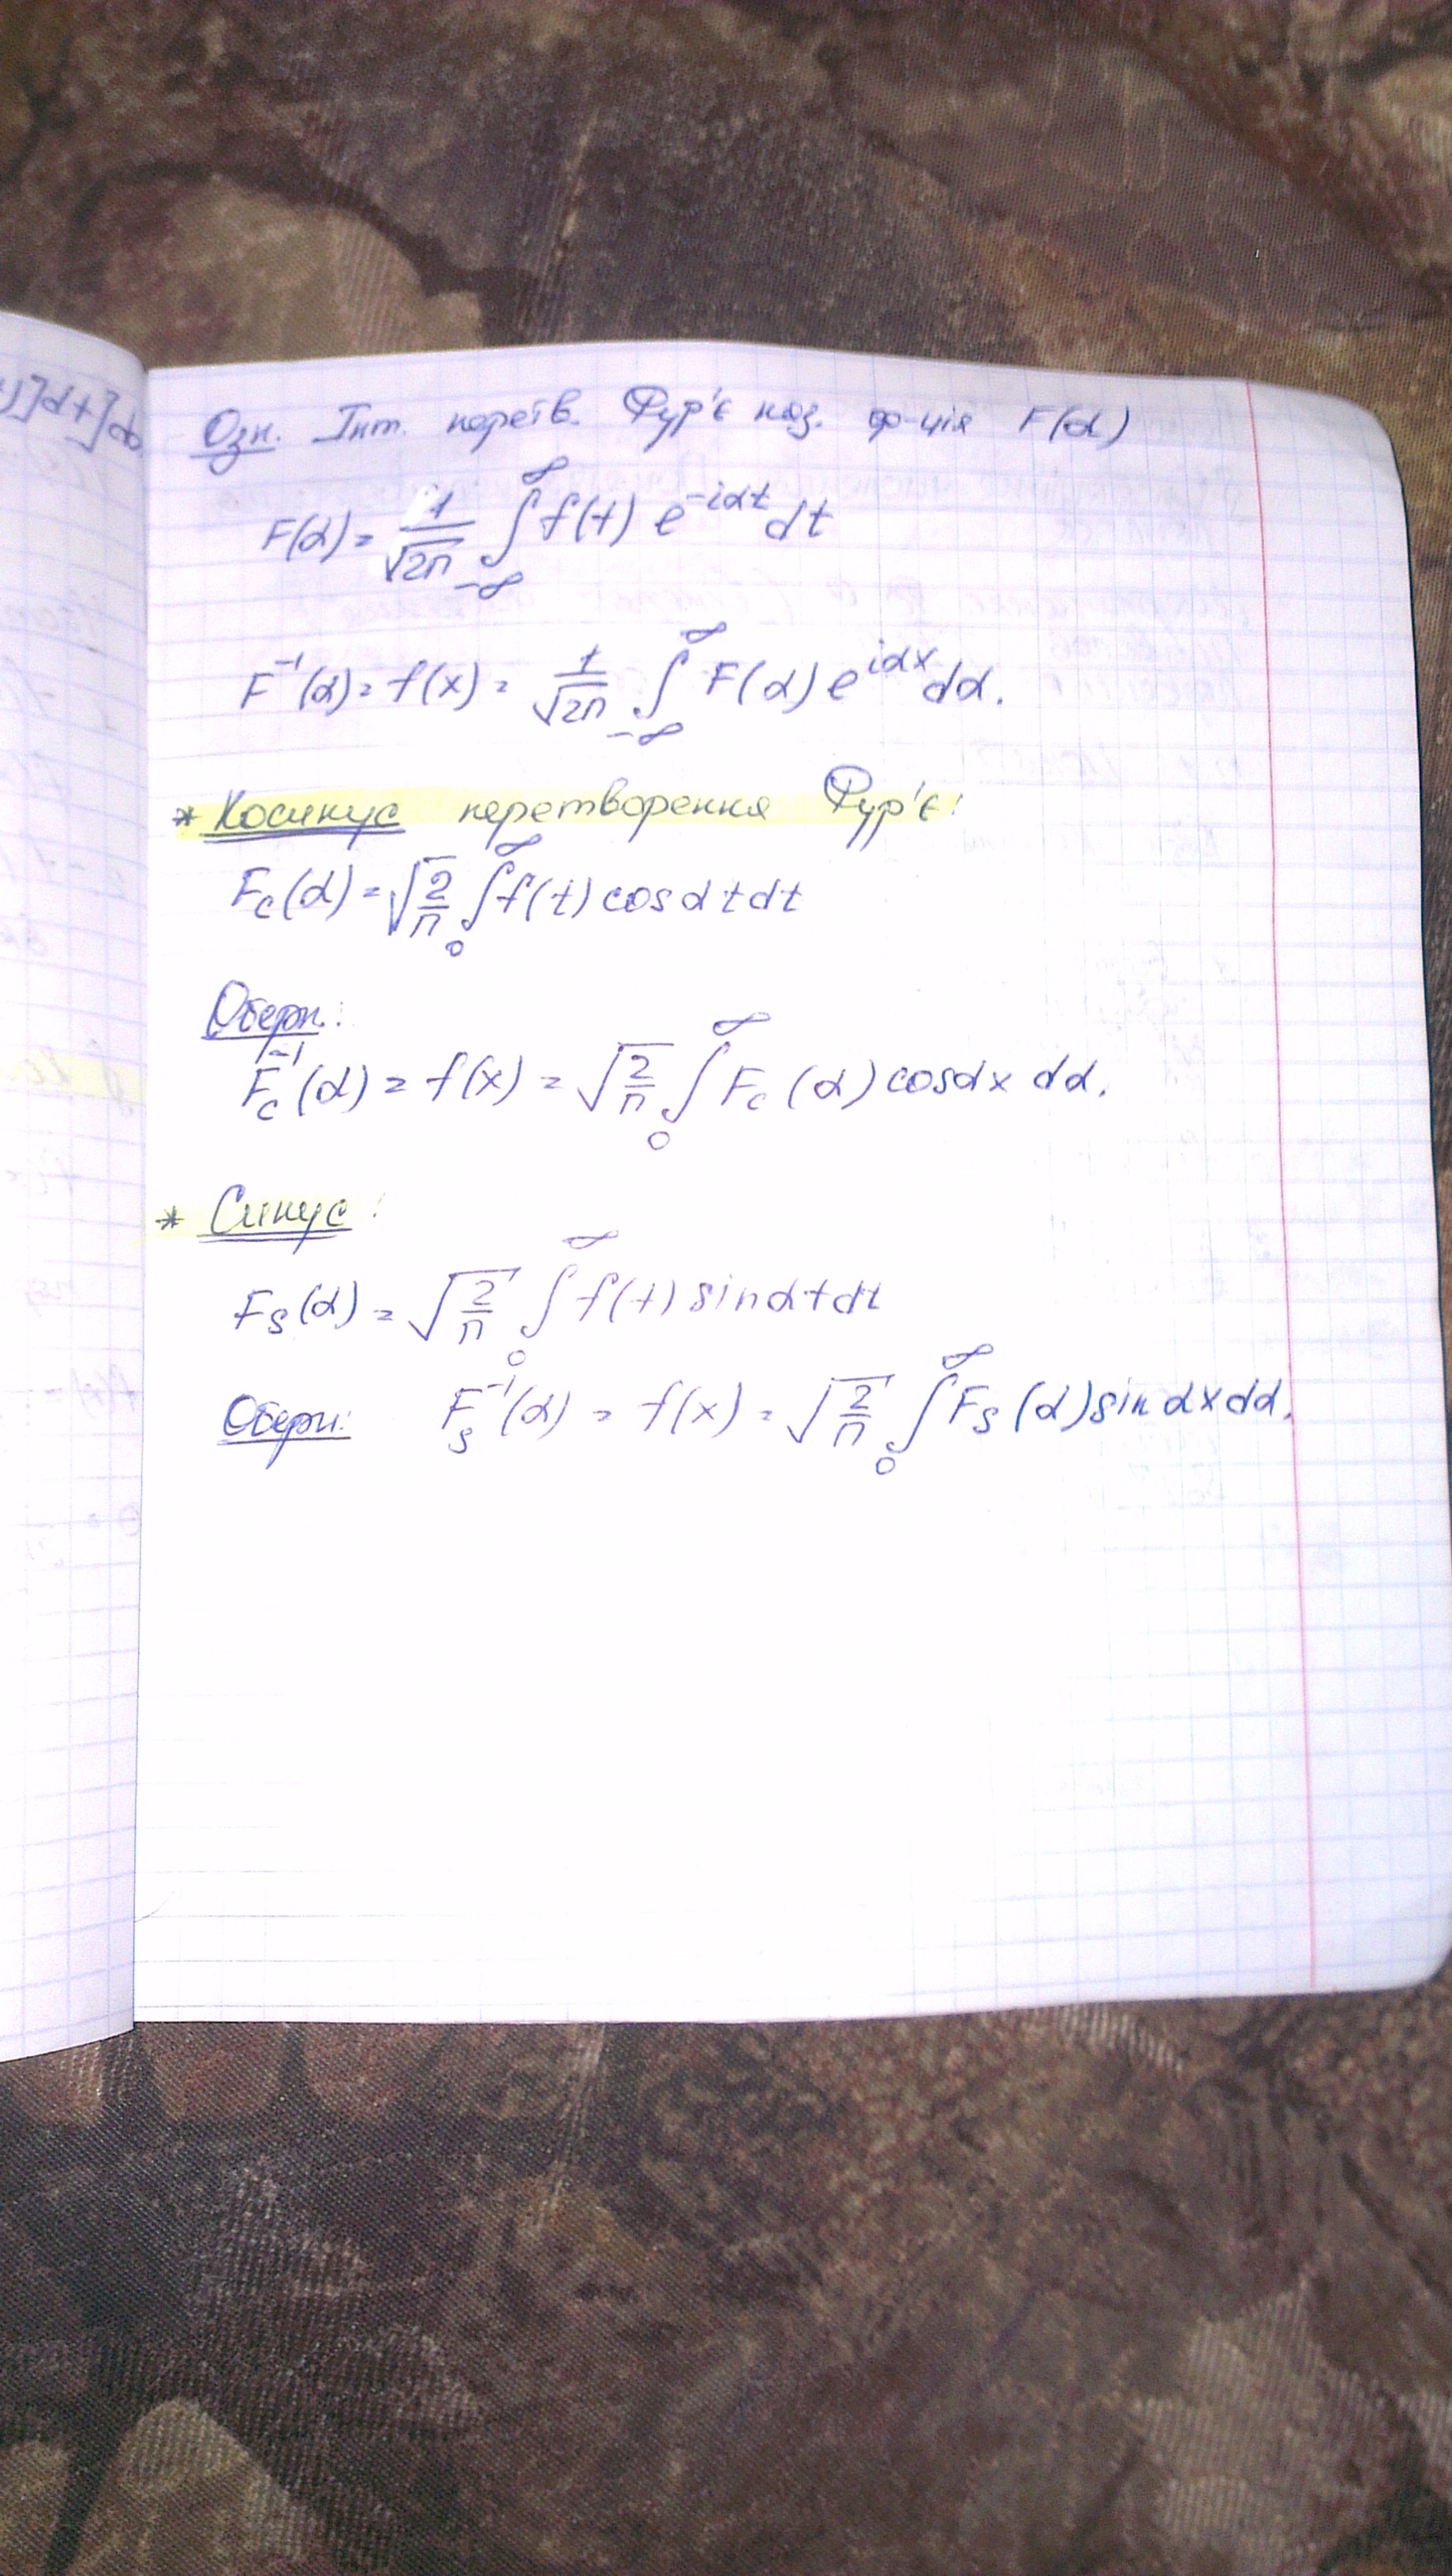 Озн. Інт. перетв. Фур'є наз. ф-ція F(α)
F(α) = 1/√2π ∫_{-∞}^{∞} f(t) e^{-iαt} dt
F^{-1}(α) = f(x) = 1/√2π ∫_{-∞}^{∞} F(α) e^{iαx} dα.
* Косинус перетворення Фур'є:
F_c(α) = √(2/π) ∫_0^∞ f(t) cos α t dt
Оберн.:
F_c^{-1}(α) = f(x) = √(2/π) ∫_0^∞ F_c (α) cos αx dα.
* Синус:
F_s(α) = √(2/π) ∫_0^∞ f(t) sin αt dt
Оберн: F_s^{-1}(α) = f(x) = √(2/π) ∫_0^∞ F_s (α) sin αx dα.